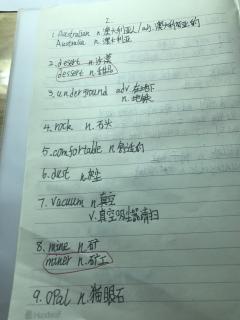 2
1. Australian n.澳大利亚人/adj.澳大利亚的
Australia n.澳大利亚
2. desert n.沙漠
dessert n.甜品
3. underground adv.在地下
n.地铁
4. rock n.石头
5. comfortable n.舒适的
6. dust n.灰尘
7. vacuum n.真空
v.真空吸尘器清扫
8. mine n.矿
miner n.矿工
9. opal n.猫眼石